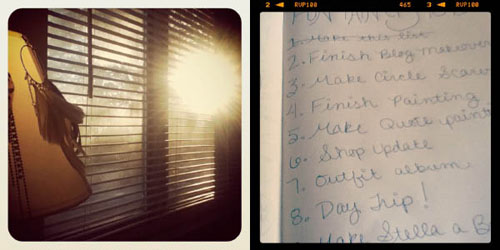 2 RVP100 465 3 RVP100
1. Make this list
2. Finish Blog makeover
3. Make Circle Scarve
4. Finish Painting
5. Make Quote paint
6. Shop update
7. Outfit album
8. Day Trip!
Make Stella a B